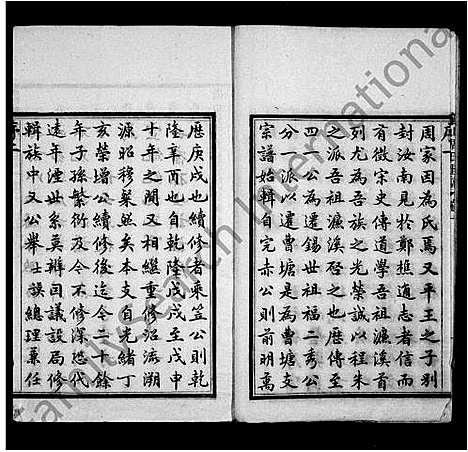 周家因為氏焉又平王之子別
封汝南見於鄭樵通志者信而
有徵宋史傳道學吾祖濂溪首
列尤為吾族之光榮誠以程朱
之派吾祖濂溪啓之也歷傳至
四八公為遷錫世祖福二秀公
分一派曹塘是為曹塘支
宗譜始輯自完赤公則前明萬
歷庚戌也續修者乘笠公則乾
隆辛丙也自乾隆戊戌至戊申
十年之間又相繼重修沿流溯
源昭穆粲然矣本支自光緒丁
亥榮增公續修後迄今二十餘
年子孫繁衍及今不修深恐代
遠年湮世系莫辨因議設局修
輯族中又公舉士誤總理兼任
FamilySearch International